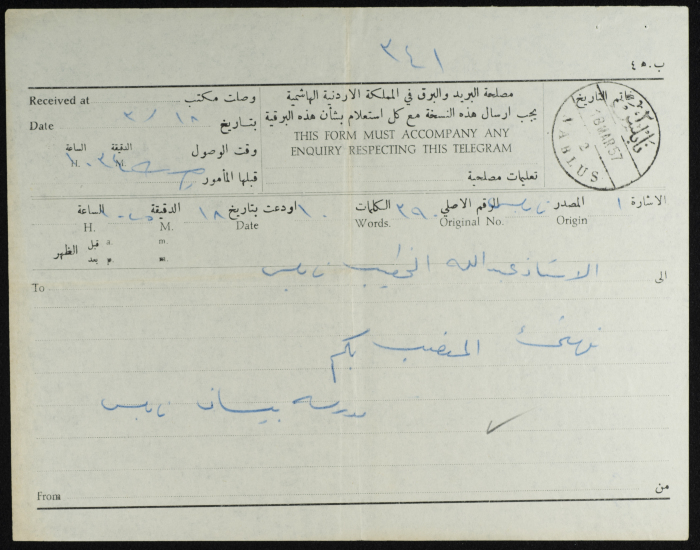 ٣٤١
ب.ه ٤
مصلحة البريد والبرق في المملكة الاردنية الهاشمية
يجب ارسال هذه النسخة مع كل استعلام بشأن هذه البرقية
THIS FORM MUST ACCOMPANY ANY
ENQUIRY RESPECTING THIS TELEGRAM
تعليمات مصلحية
Received at وصلت مكتب
Date بتاريخ ١٨ / ٣
وقت الوصول الدقيقة الساعة
H. M.
قبلها المأمور
خاتم التاريخ
نابلس
18 MAR 57
NABLUS
2
الاشارة ١ المصدر نابلس الرقم الاصلي ٣٩٠ الكلمات ١٠ اودعت بتاريخ ١٨ الدقيقة الساعة
Origin Original No. Words. Date M. H.
قبل a. m.
بعد p. m.
الظهر
الى الاستاذ عبدالله الخطيب نابلس
To
نهنئ المنصب بكم
مدرسة بيسان نابلس
From من